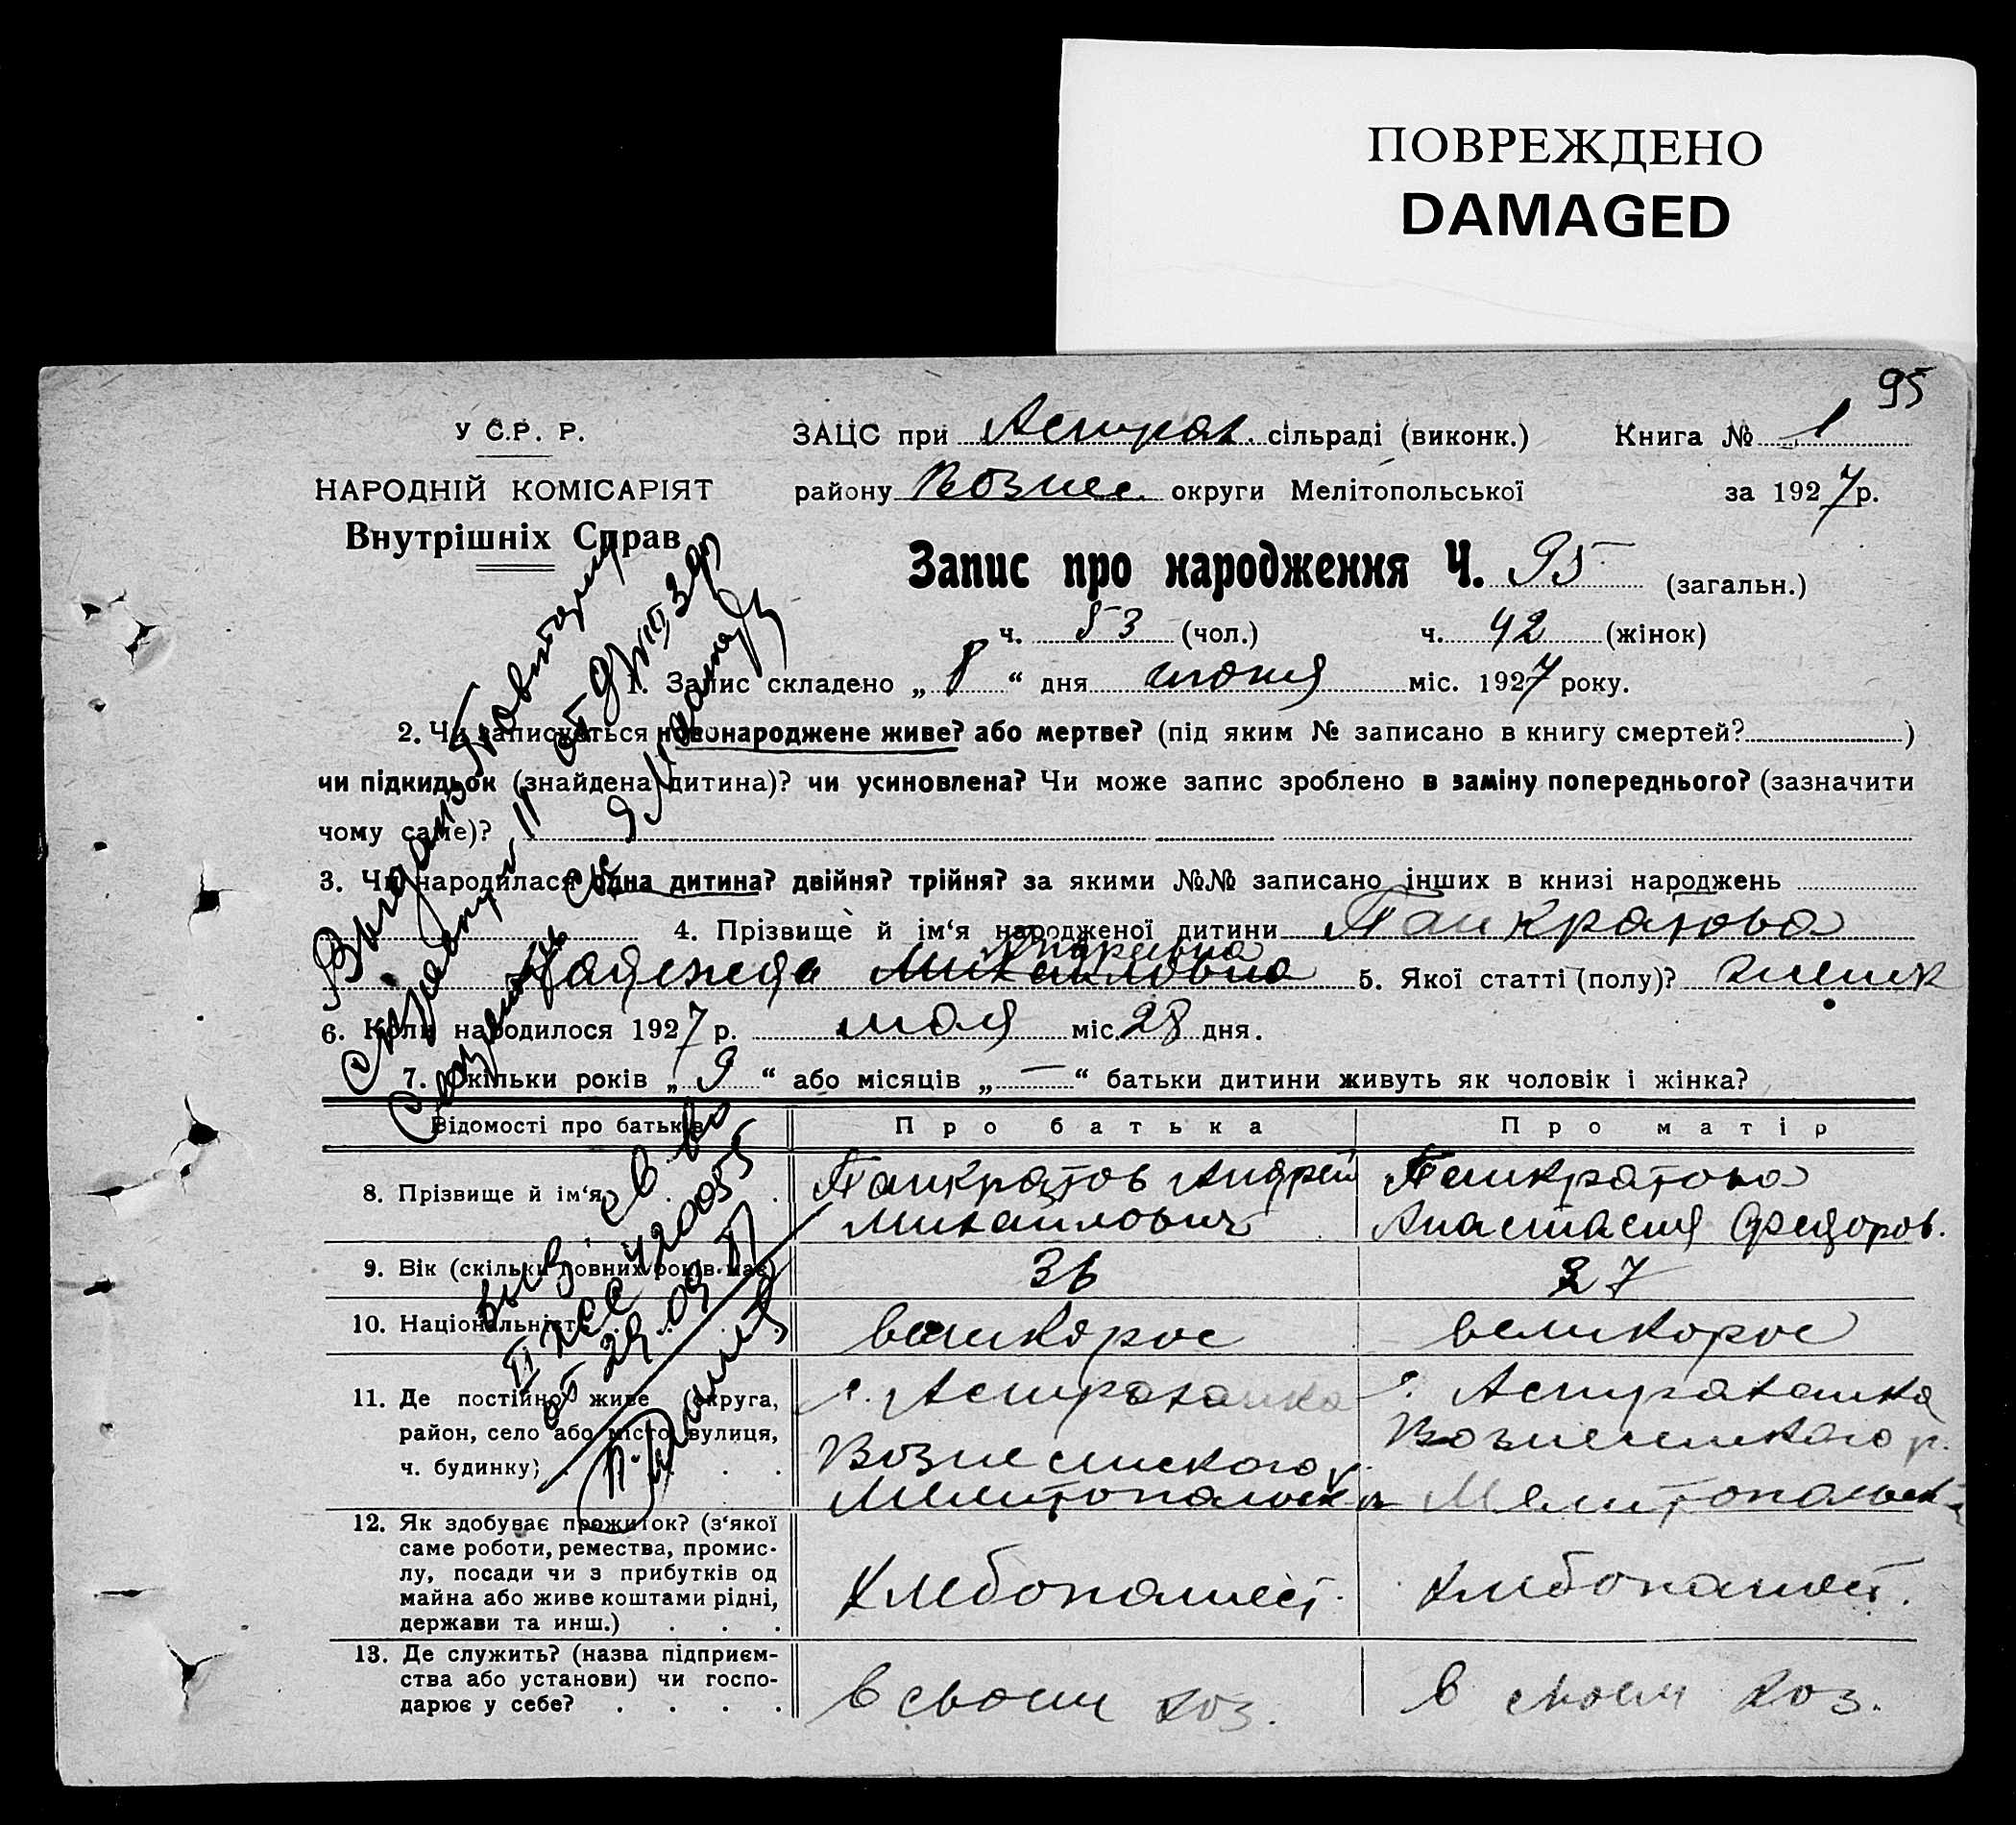 ПОВРЕЖДЕНО
DAMAGED
95
У С.Р. Р.
НАРОДНІЙ КОМІСАРІЯТ
Внутрішніх Справ
ЗАЦС при Астрах. сільраді (виконк.) Книга № 1
району Вознес. округи Мелітопольської за 1927 р.
Запис про народження Ч. 95 (загальн.)
ч. 53 (чол.) ч. 42 (жінок)
1. Запис складено „ 8 “ дня июня міс. 1927 року.
2. Чи записується новонароджене живе? або мертве? (під яким № записано в книгу смертей? )
чи підкидьок (знайдена дитина)? чи усиновлена? Чи може запис зроблено в заміну попереднього? (зазначити
чому саме)?
3. Чи народилася одна дитина? двійня? трійня? за якими №№ записано інших в книзі народжень
4. Прізвище й ім‘я народженої дитини Панкратова
Андреевна
Надежда Михайловна 5. Якої статті (полу)? женск
6. Коли народилося 1927 р. мая міс. 28 дня.
7. Скільки років „ 9 “ або місяців „ — “ батьки дитини живуть як чоловік і жінка?
Відомості про батьків Про батька Про матір
8. Прізвище й ім‘я Панкратов Андрей Панкратова
Михайлович Анастасия Федоров.
9. Вік (скільки повних років має) 36 27
10. Національність великорос великорос
11. Де постійно живе (округа, с. Астраханка с. Астраханка
район, село або місто, вулиця, Вознесенского р. Вознесенского р.
ч. будинку) Мелитопольск Мелитопольск
12. Як здобуває прожиток? (з‘якої
саме роботи, ремества, промис-
лу, посади чи з прибутків од
майна або живе коштами рідні, Хлебопашест. Хлебопашест.
держави та инш.)
13. Де служить? (назва підприєм-
ства або установи) чи госпо-
дарює у себе? В своем хоз. В своем хоз.
Выдано повторно
от
выз. св-во
420055
от 29.09